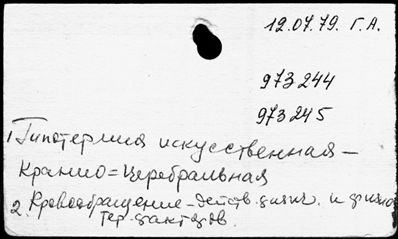 12.07.79. Г.А.
973244
973245
1 Гипотермия искусственная –
Кранио=церебральная
2. Кровообращение – действ. физич. и
тер. факторов.